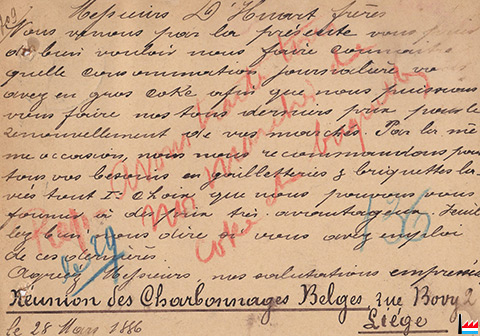 Messieurs D'Huart frères
Nous venons par la présente vous prier
de bien vouloir nous faire connaitre
quelle consommation journalière vs
avez en gros coke afin que nous puissions
vous faire nos tous derniers prix pour le
renouvellement de vos marchés. Par la mê-
me occasion, nous nous recommandons pour
tous vos besoins en gailletteries & briquettes la-
vés tout I. Choix que nous pouvons vous
fournir à des prix très avantageux. Veuil-
lez bien nous dire si vous avez emploi
de ces dernières.
Agréez Messieurs nos salutations empressées
Réunion des Charbonnages Belges, rue Bovy 2
Liège
le 28 Mars 1886
Rep.
nos marchés de
coke et briquettes
136